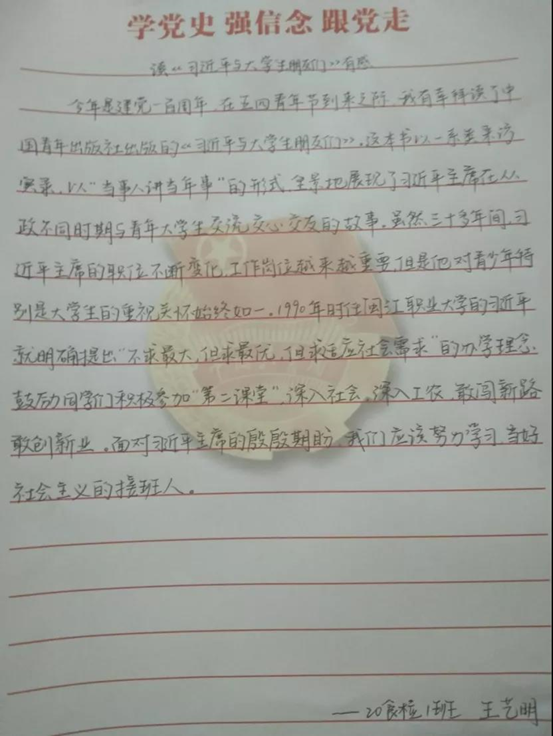 学党史 强信念 跟党走
读《习近平与大学生朋友们》有感
今年是建党一百周年,在五四青年节到来之际,我有幸拜读了中
国青年出版社出版的《习近平与大学生朋友们》。这本书以一系类采访
实录,以“当事人讲当年事”的形式,全景地展现了习近平主席在从
政不同时期与青年大学生交流交心交友的故事。虽然三十多年间,习
近平主席的职位不断变化,工作岗位越来越重要,但是他对青少年特
别是大学生的重视关怀始终如一。1990年时任闽江职业大学的习近平
就明确提出“不求最大,但求最优,但求适应社会需求”的办学理念,
鼓励同学们积极参加“第二课堂”,深入社会,深入工农,敢闯新路
敢创新业。面对习近平主席的殷殷期盼,我们应该努力学习,当好
社会主义的接班人。
——20食检1班 王艺明